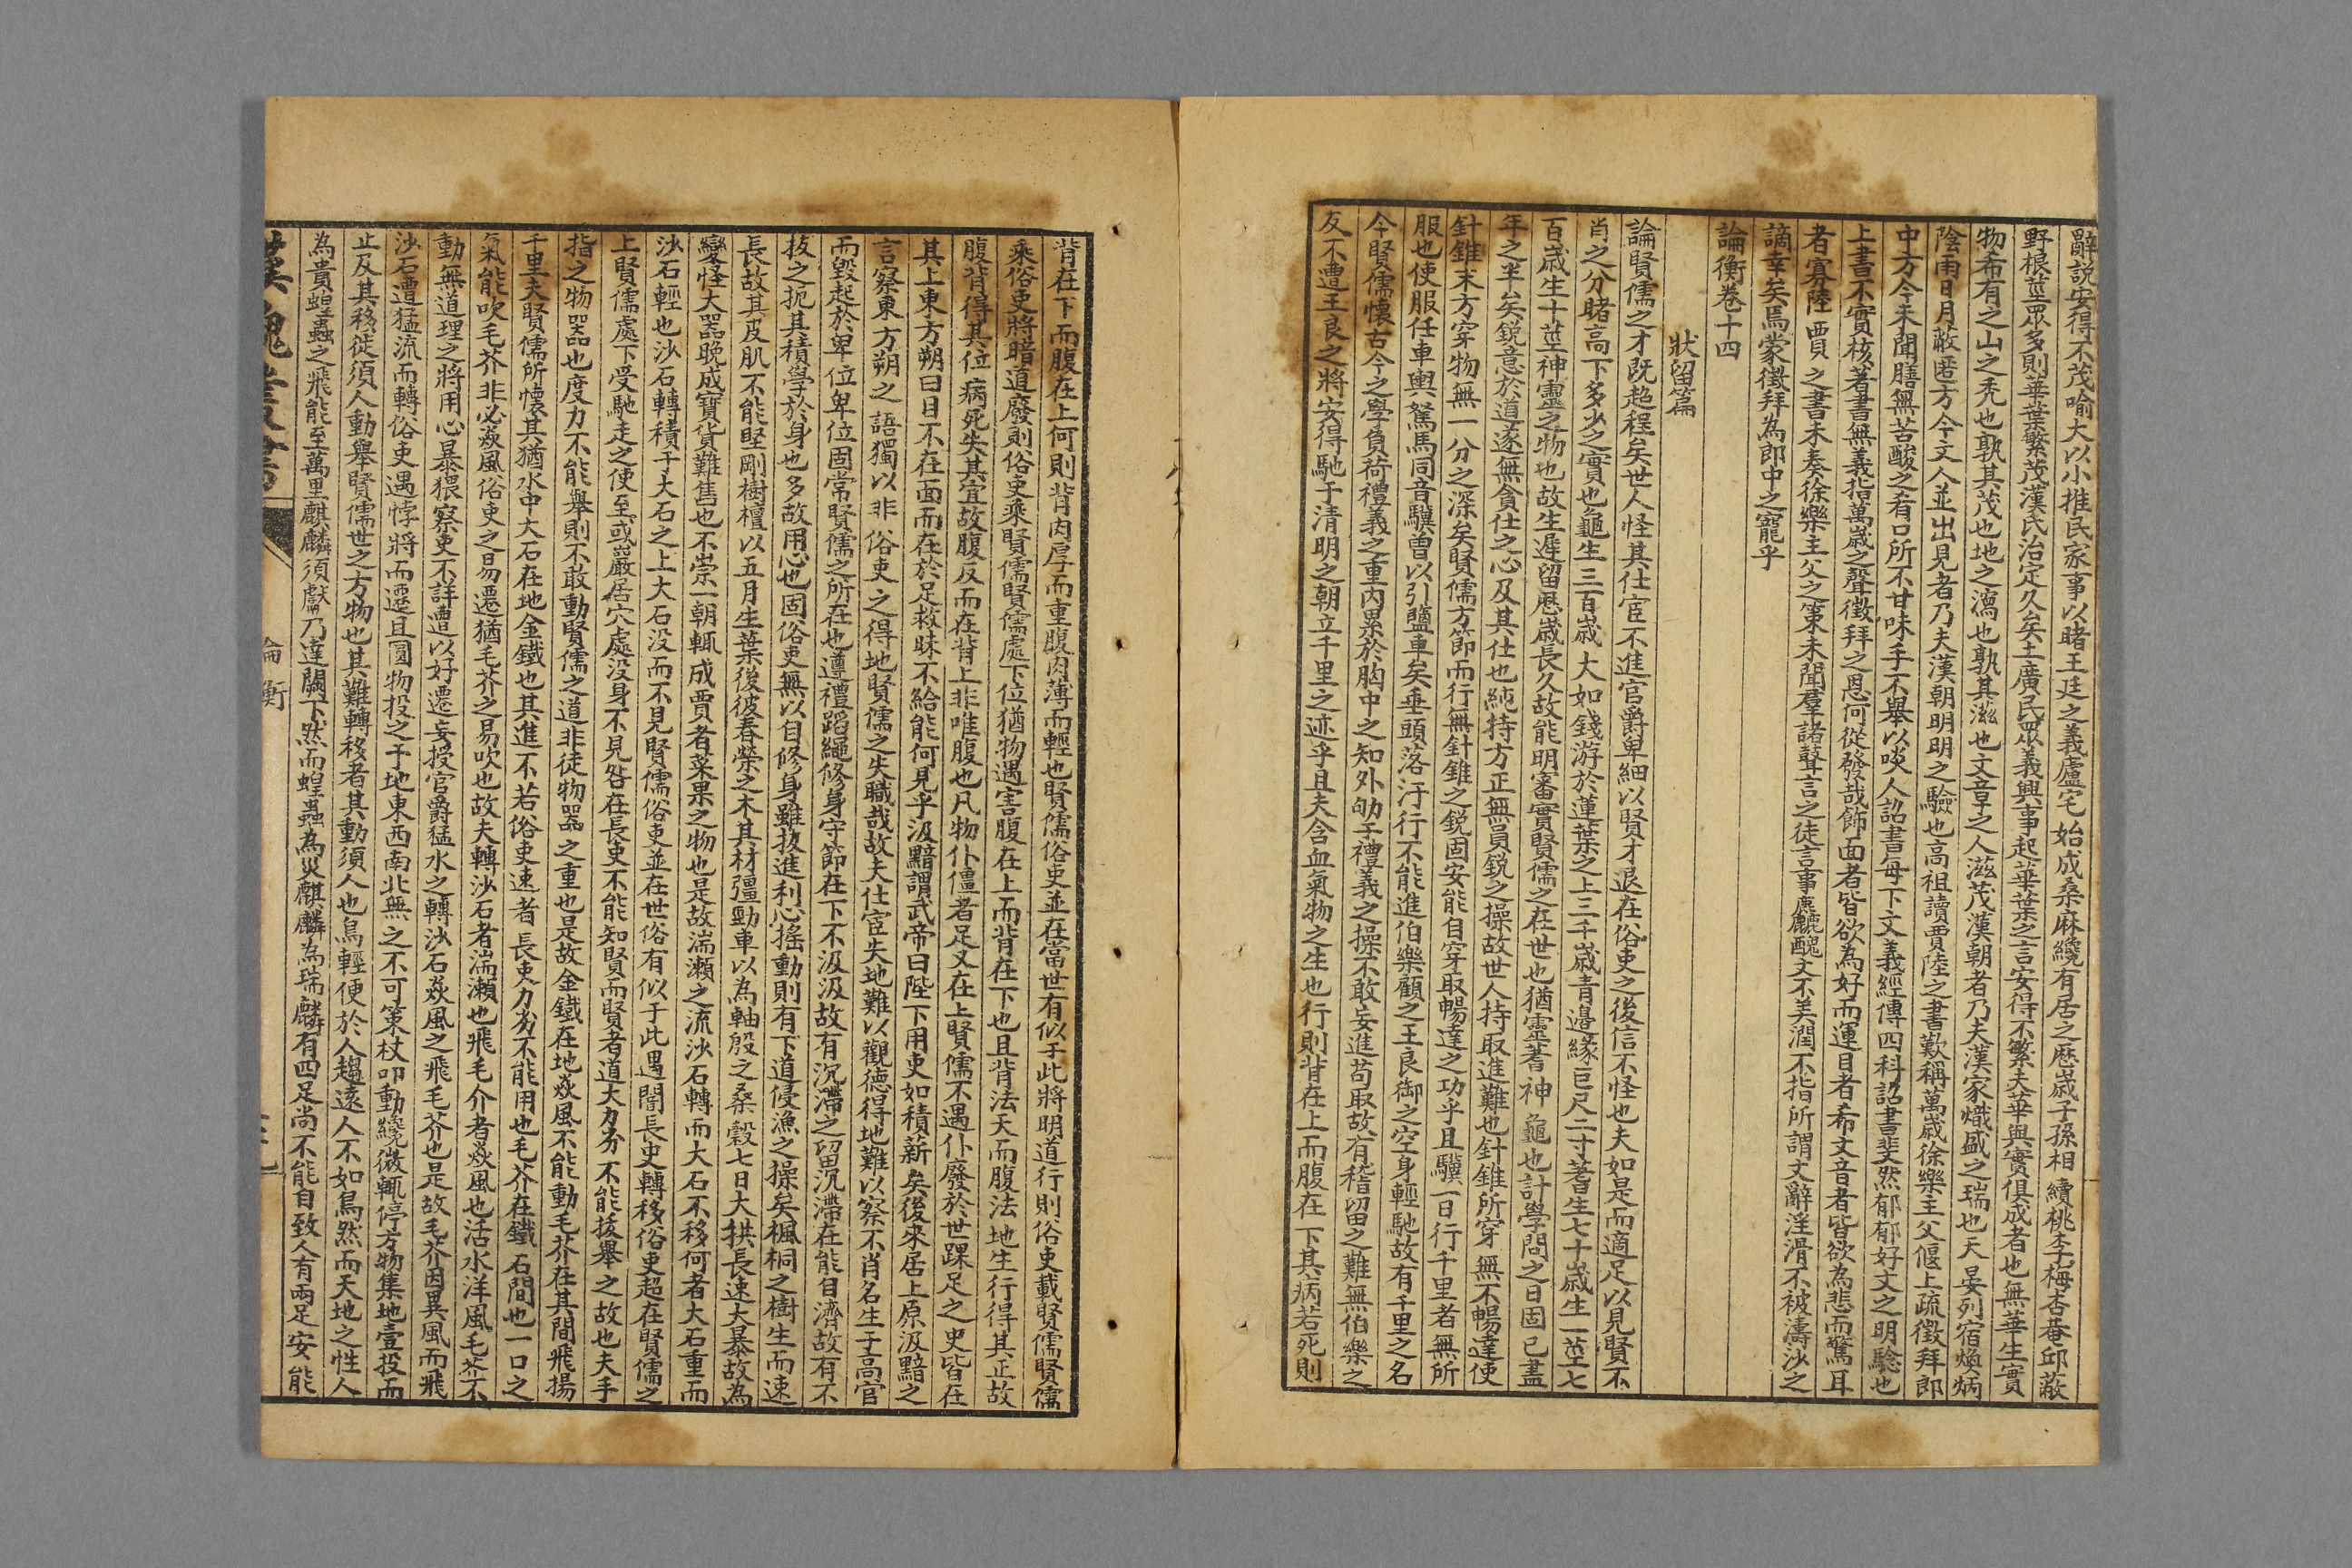 辭說安得不茂喻大以小推民家事以睹王廷之義廬宅始成桑麻纔有居之歷歲子孫相續桃李梅杏菴邱蔽
野根莖眾多則華葉繁茂漢氏治定久矣土廣民眾義興事起華葉之言安得不繁夫華與實俱成者也無華生實
物希有之山之禿也孰其茂也地之瀉也孰其滋也文章之人滋茂漢朝者乃夫漢家熾盛之瑞也天晏列宿煥炳
陰雨日月蔽匿方今文人並出見者乃夫漢朝明明之驗也高祖讀賈陸之書歎稱萬歲徐樂主父偃上疏徵拜郎
中方今未聞膳無苦酸之肴口所不甘味手不舉以啖人詔書每下文義經傳四科詔書斐然郁郁好文之明驗也
上書不實核著書無義指萬歲之聲徵拜之恩何從發哉飾面者皆欲為好而運目者希文音者皆欲為悲而驚耳
者寡陸賈之書未奏徐樂主父之策未聞羣諸瞽言之徒言事麤醜文不美潤不指所謂文辭淫滑不被濤沙之
謫幸矣焉蒙徵拜為郎中之寵乎
論衡卷十四
狀留篇
論賢儒之才既超程矣世人怪其仕宦不進官爵卑細以賢才退在俗吏之後信不怪也夫如是而適足以見賢不
肖之分睹高下多少之實也龜生三百歲大如錢游於蓮葉之上三千歲青邊緣巨尺二寸蓍生七十歲生一莖七
百歲生十莖神靈之物也故生遲留歷歲長久故能明審實賢儒之在世也猶靈蓍神龜也計學問之日固已盡
年之半矣銳意於道遂無貪仕之心及其仕也純持方正無員銳之操故世人持取進難也針錐所穿無不暢達使
針錐末方穿物無一分之深矣賢儒方節而行無針錐之銳固安能自穿取暢達之功乎且驥一日行千里者無所
服也使服任車輿駑馬同音驥曾以引鹽車矣垂頭落汗行不能進伯樂顧之王良御之空身輕馳故有千里之名
今賢儒懷古今之學負荷禮義之重內累於胸中之知外劬于禮義之操不敢妄進苟取故有稽留之難無伯樂之
友不遭王良之將安得馳于清明之朝立千里之迹乎且夫含血氣物之生也行則背在上而腹在下其病若死則
背在下而腹在上何則背肉厚而重腹肉薄而輕也賢儒俗吏並在當世有似于此將明道行則俗吏載賢儒賢儒
乘俗吏將暗道廢則俗吏乘賢儒賢儒處下位猶物遇害腹在上而背在下也且背法天而腹法地生行得其正故
腹背得其位病死失其宜故腹反而在背上非唯腹也凡物仆僵者足又在上賢儒不遇仆廢於世踝足之吏皆在
其上東方朔曰目不在面而在於足救昧不給能何見乎汲黯謂武帝曰陛下用吏如積薪矣後來居上原汲黯之
言察東方朔之語獨以非俗吏之得地賢儒之失職哉故夫仕宦失地難以觀德得地難以察不肖名生于高官
而毀起於卑位卑位固常賢儒之所在也遵禮蹈繩修身守節在下不汲汲故有沉滯之留沉滯在能自濟故有不
拔之扼其積學於身也多故用心也固俗吏無以自修身雖拔進利心搖動則有下道侵漁之操矣楓桐之樹生而速
長故其皮肌不能堅剛樹檀以五月生葉後彼春榮之木其材彊勁車以為軸殷之桑穀七日大拱長速大暴故為
變怪大器晚成寶貨難售也不崇一朝輒成賈者菜果之物也是故湍瀨之流沙石轉而大石不移何者大石重而
沙石輕也沙石轉積于大石之上大石没而不見賢儒俗吏並在世俗有似于此遇闇長吏轉移俗吏超在賢儒之
上賢儒處下受馳走之使至或巖居穴處没身不見咎在長吏不能知賢而賢者道大力劣不能拔舉之故也夫手
指之物器也度力不能舉則不敢動賢儒之道非徒物器之重也是故金鐵在地猋風不能動毛芥在其間飛揚
千里夫賢儒所懷其猶水中大石在地金鐵也其進不若俗吏速者長吏力劣不能用也毛芥在鐵石間也一口之
氣能吹毛芥非必猋風俗吏之易遷猶毛芥之易吹也故夫轉沙石者湍瀨也飛毛介者猋風也活水洋風毛芥不
動無道理之將用心暴猥察吏不詳遭以好遷妄授官爵猛水之轉沙石猋風之飛毛芥也是故毛芥因異風而飛
沙石遭猛流而轉俗吏遇悖將而遷且圓物投之于地東西南北無之不可策杖叩動纔微輒停方物集地壹投而
止及其移徙須人動舉賢儒世之方物也其難轉移者其動須人也鳥輕便於人趨遠人不如鳥然而天地之性人
為貴蝗蟲之飛能至萬里麒麟須獻乃達闕下然而蝗蟲為災麒麟為瑞麟有四足尚不能自致人有兩足安能
論衡